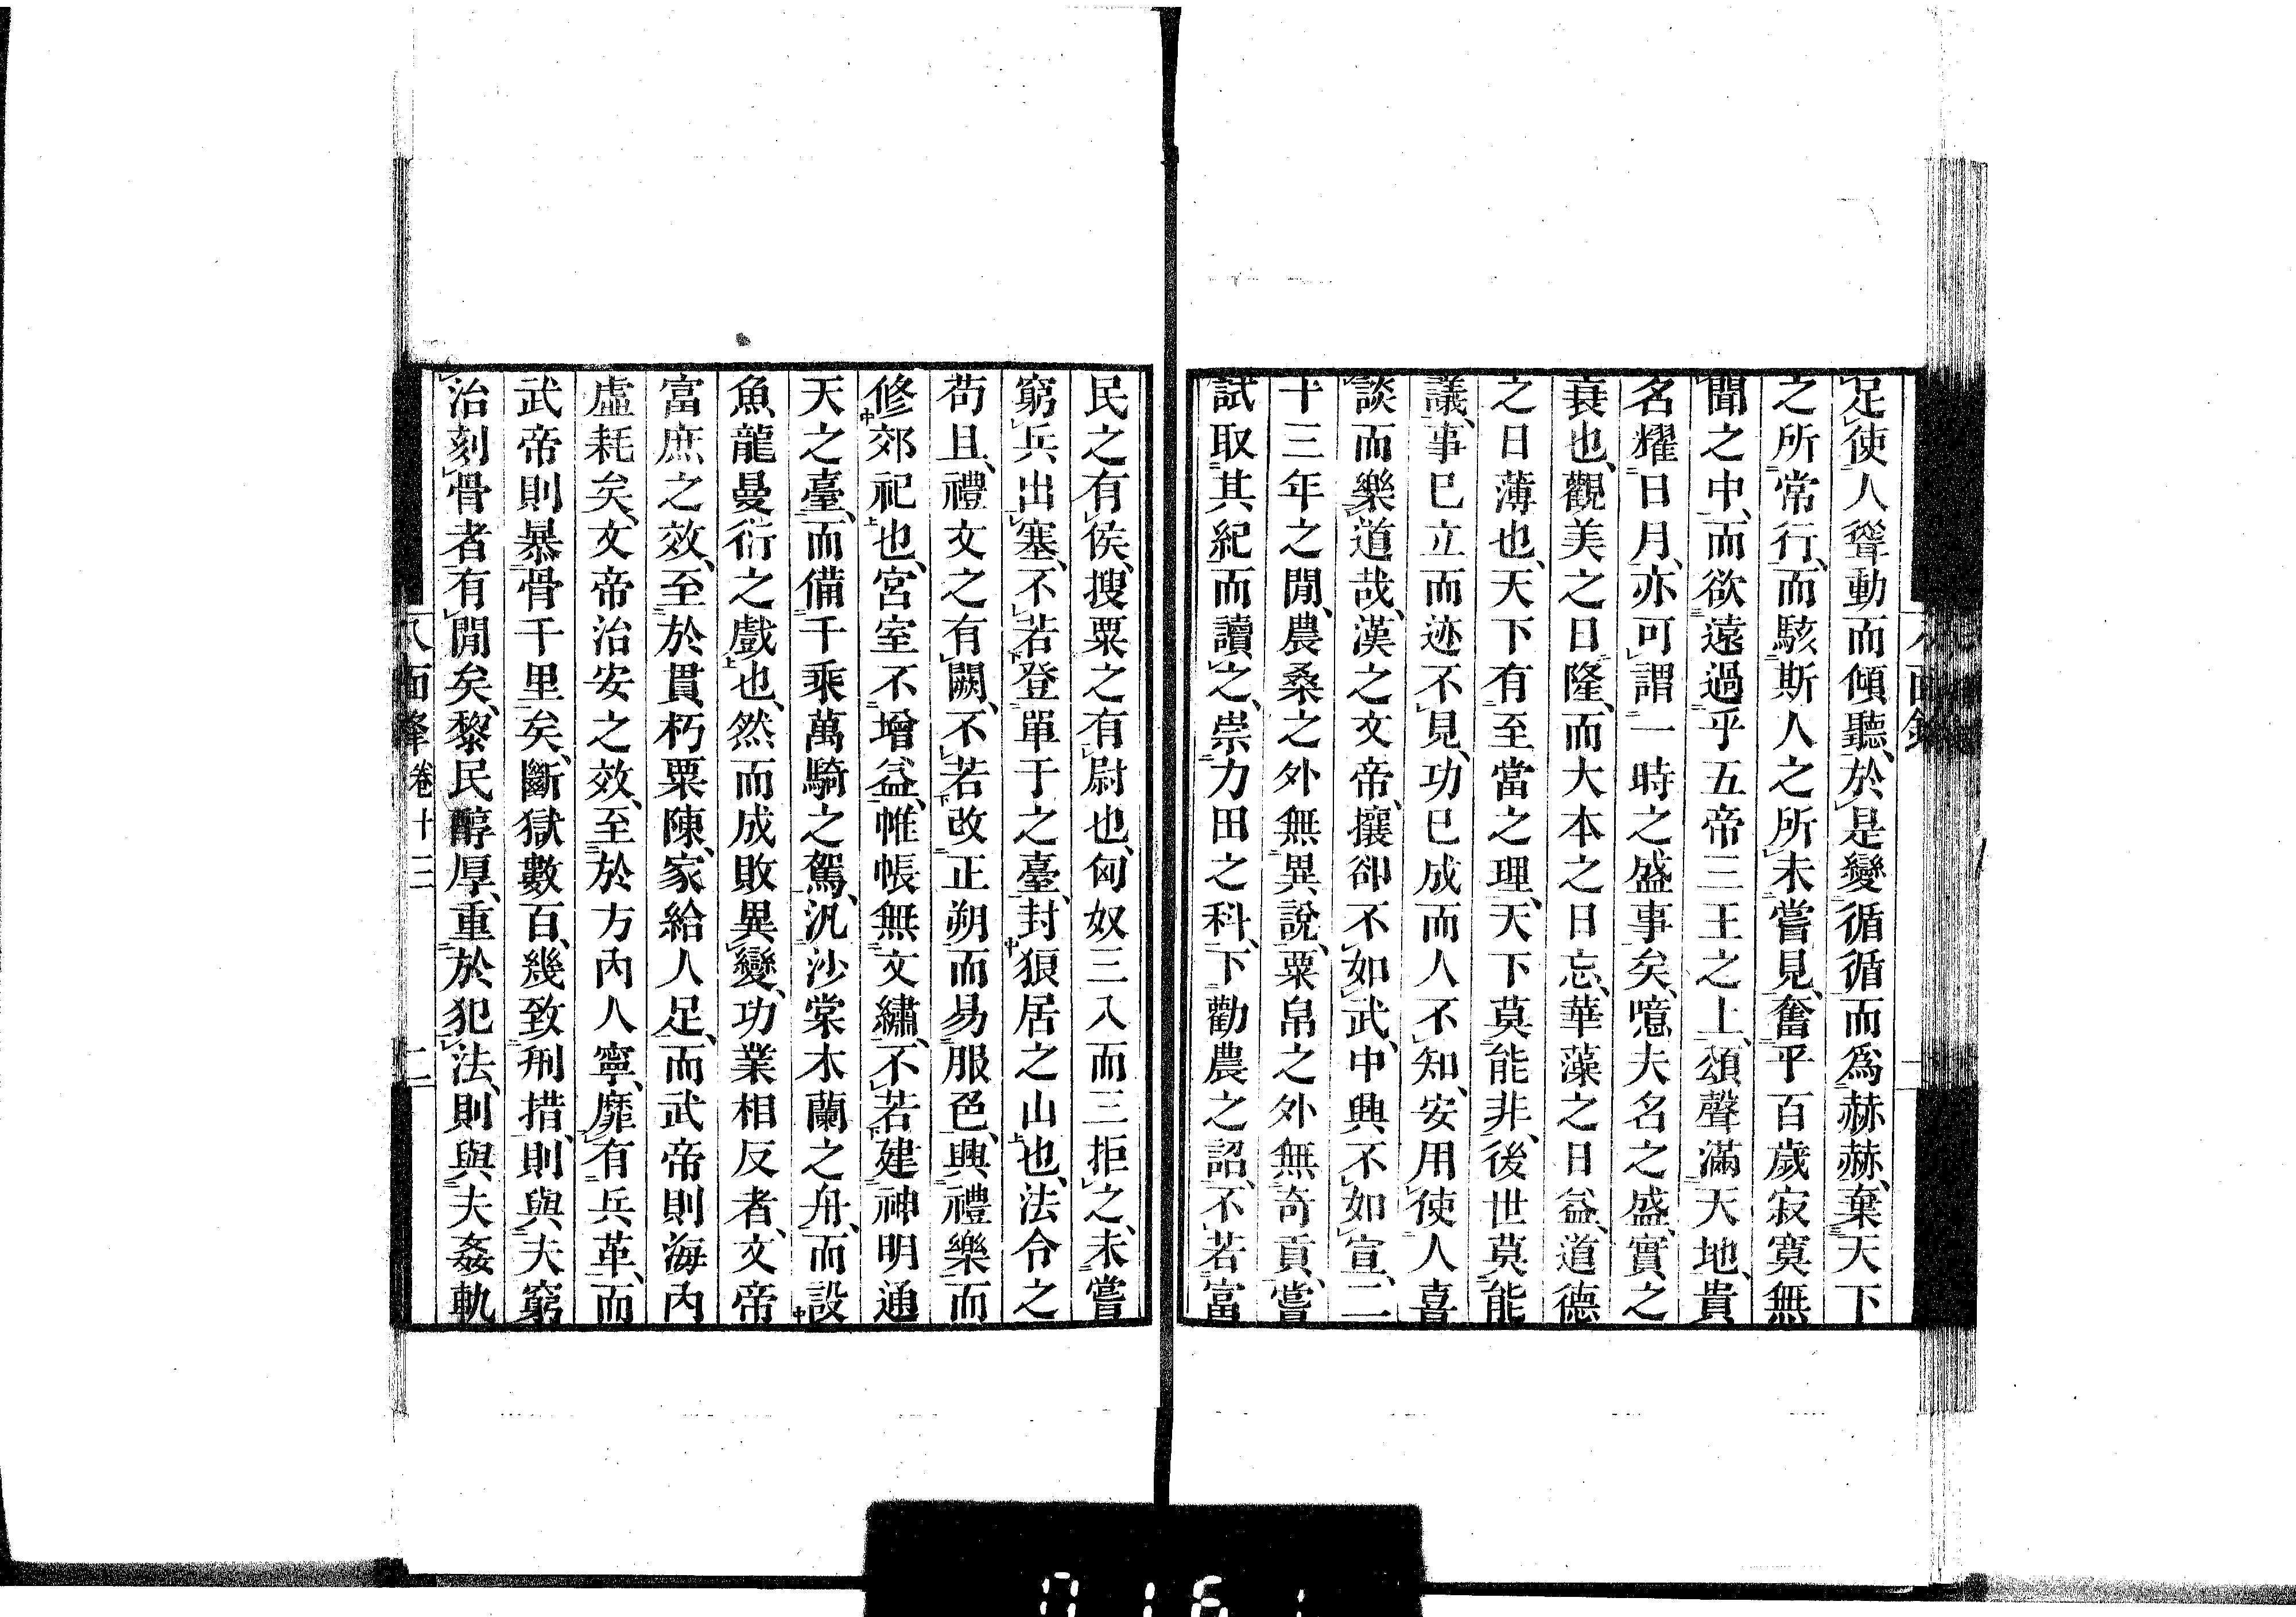 足使人聳動而傾聽、於是變循循而爲赫赫、棄天下
之所常行、而駭斯人之所未嘗見、奮乎百歲寂寞無
聞之中、而欲遠過乎五帝三王之上、頌聲滿天地、貴
名耀日月、亦可謂一時之盛事矣、噫夫名之盛、實之
衰也、觀美之日隆、而大本之日忘、華藻之日益、道德
之日薄也、天下有至當之理、天下莫能非、後世莫能
議、事已立而迹不見、功已成而人不知、安用使人喜
談而樂道哉、漢之文帝、攘卻不如武、中興不如宣、二
十三年之閒、農桑之外無異說、粟帛之外無奇貢、嘗
試取其紀而讀之、崇力田之科、下勸農之詔、不若富
民之有侯、搜粟之有尉也、匈奴三入而三拒之、未嘗
窮兵出塞、不若登單于之臺、封狼居之山也、法令之
苟且、禮文之有闕、不若改正朔而易服色、興禮樂而
修郊祀也、宮室不增益、帷帳無文繡、不若建神明通
天之臺、而備千乘萬騎之駕、汎沙棠木蘭之舟、而設
魚龍曼衍之戲也、然而成敗異變、功業相反者、文帝
富庶之效、至於貫朽粟陳、家給人足、而武帝則海內
虛耗矣、文帝治安之效、至於方內人寧、靡有兵革、而
武帝則暴骨千里矣、斷獄數百、幾致刑措、則與夫窮
治刻骨者有閒矣、黎民醇厚、重於犯法、則與夫姦軌
八面鋒 卷十三 二